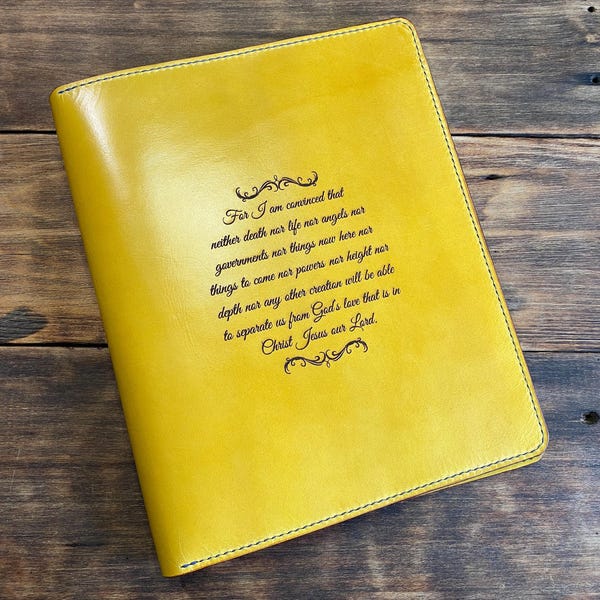 For I am convinced that
neither death nor life nor angels nor
governments nor things now here nor
things to come nor powers nor height nor
depth nor any other creation will be able
to separate us from God's love that is in
Christ Jesus our Lord.